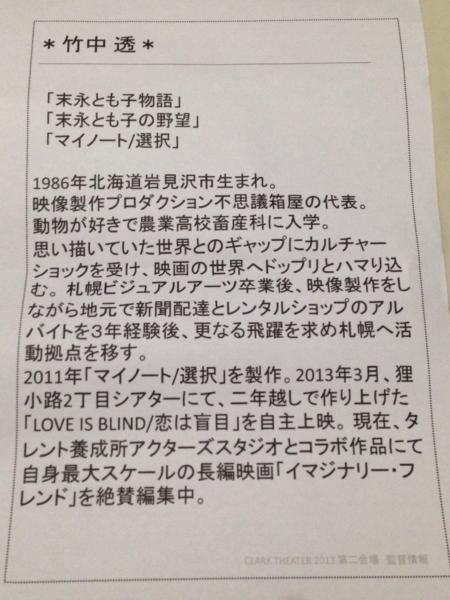 ＊竹中 透＊
「末永とも子物語」
「末永とも子の野望」
「マイノート/選択」
1986年北海道岩見沢市生まれ。
映像製作プロダクション不思議箱屋の代表。
動物が好きで農業高校畜産科に入学。
思い描いていた世界とのギャップにカルチャー
ショックを受け、映画の世界へドップリとハマり込
む。札幌ビジュアルアーツ卒業後、映像製作をし
ながら地元で新聞配達とレンタルショップのアル
バイトを３年経験後、更なる飛躍を求め札幌へ活
動拠点を移す。
2011年「マイノート/選択」を製作。2013年3月、狸
小路2丁目シアターにて、二年越しで作り上げた
「LOVE IS BLIND/恋は盲目」を自主上映。現在、タ
レント養成所アクターズスタジオとコラボ作品にて
自身最大スケールの長編映画「イマジナリー・フ
レンド」を絶賛編集中。
CLARK THEATER 2013 第二会場 監督情報